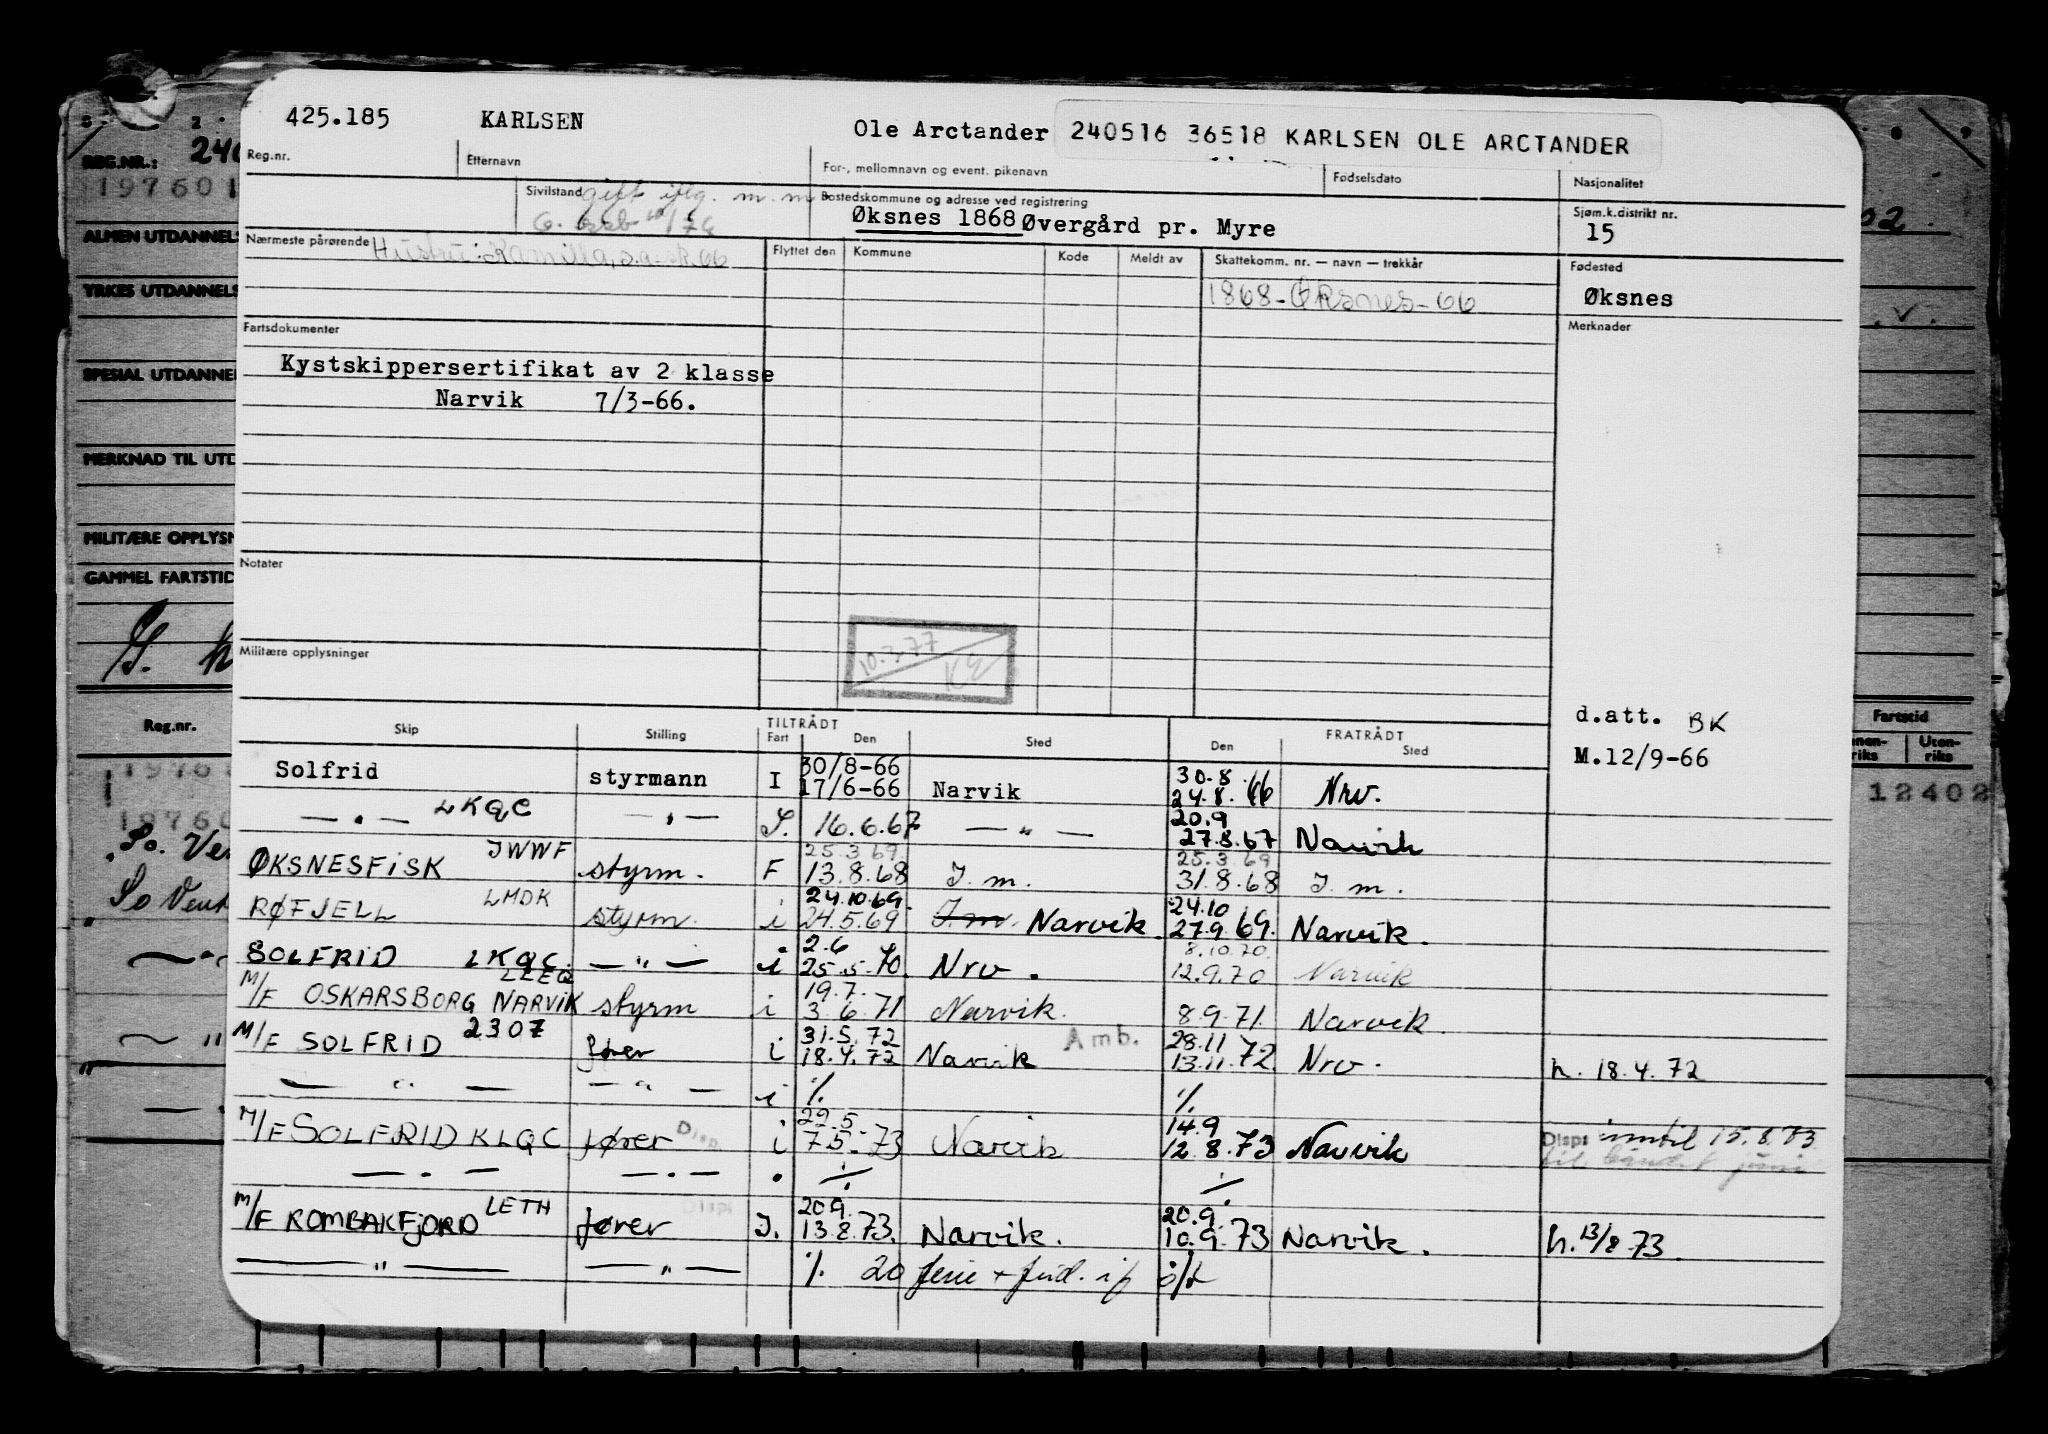 425.185 KARLSEN Ole Arctander 240516 36518 KARLSEN OLE ARCTANDER
Reg.nr. Etternavn For-, mellomnavn og event. pikenavn Fødselsdato Nasjonalitet
Sivilstand gift Bostedskommune og adresse ved registrering Sjøm.k.distrikt nr.
Øksnes 1868 Øvergård pr. Myre 15
Nærmeste pårørende Hustru: Kamilla, s.a. Flyttet den Kommune Kode Meldt av Skattekomm. nr. — navn — trekkår Fødested
1868-Øksnes-66 Øksnes
Fartsdokumenter Merknader
Kystskippersertifikat av 2 klasse
Narvik 7/3-66.
Notater
10.3.77
Militære opplysninger
d.att. BK
M.12/9-66
TILTRÅDT FRATRÅDT
Skip Stilling Fart Den Sted Den Sted
30/8-66 30.8.66
Solfrid styrmann I 17/6-66 Narvik 24.8.66 Nrv.
20.9
— " — LKQC — " — S. 16.6.67 — " — 27.8.67 Narvik
25.3.69 25.3.69
ØKSNESFISK JWWF styrm. F 13.8.68 J. m. 31.8.68 J. m.
24.10.69. 24.10
RØFJELL LMDK styrm. i 24.5.69 J.m. Narvik. 27.9.69. Narvik.
2.6 8.10.70.
SOLFRID LKQC — " — i 25.5.70. Nrv. 12.9.70 Narvik
LEEQ 19.7.
M/F OSKARSBORG NARVIK styrm i 3.6.71 Narvik. 8.9.71. Narvik.
31.5.72 Amb. 28.11
M/F SOLFRID 2307 fører i 18.4.72 Narvik 13.11.72. Nrv. h. 18.4.72
— " — — " — i ./. ./.
22.5. 14.9
M/F SOLFRID KLQC fører Disp. i 7.5.73 Narvik 12.8.73 Narvik Disp inntil 15.8.73
— " — — " — " ./. ./.
20.9. 20.9.
M/F ROMBAKFJORD LETH fører Disp J. 13.8.73. Narvik. 10.9.73 Narvik. h. 13/8-73.
— " — — " — ./. 20 ferie +
REG.NR.:
197601
ALMEN UTDANNELS
YRKES UTDANNELS
SPESIAL UTDANNE
MERKNAD TIL UTD
MILITÆRE OPPLYSN
GAMMEL FARTSTID
Reg.nr.
Fartstid
Uten-
riks
12402